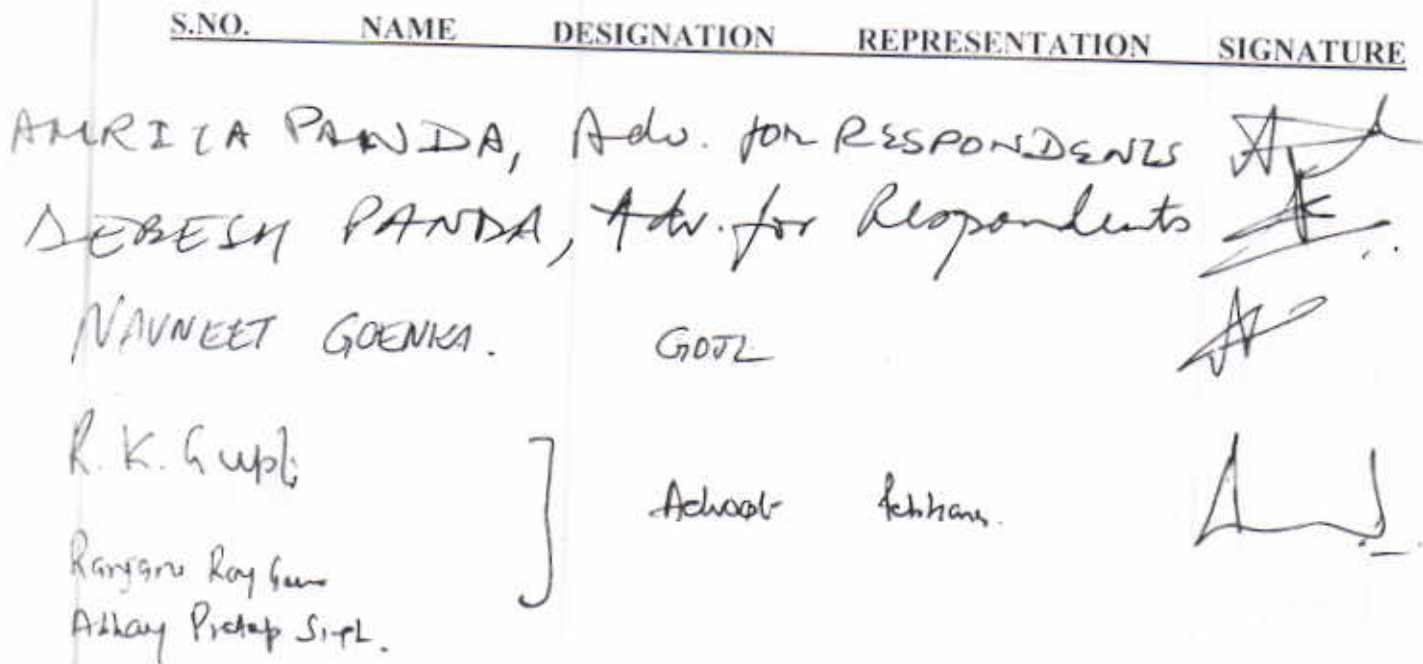 S.NO. NAME DESIGNATION REPRESENTATION SIGNATURE
AMRITA PANDA, Adv. for RESPONDENTS
DEBESH PANDA, Adv. for Respondents
NAVNEET GOENKA.
R. K. Gupta
Ranjana Roy
Abhay Pratap Singh.